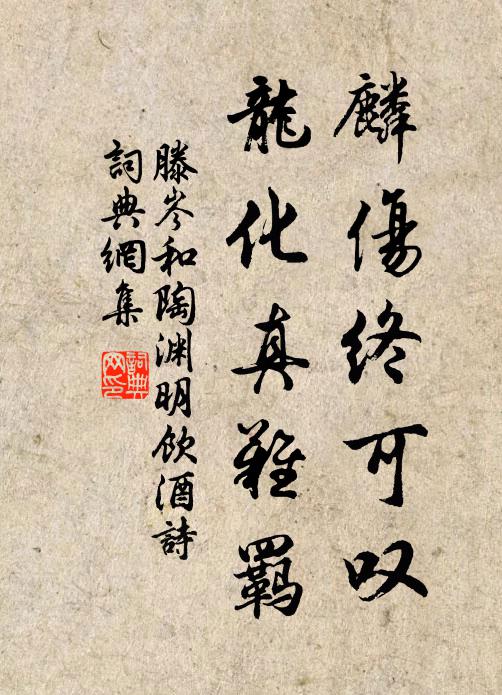 麟傷終可叹
龍化真難羈
滕岑和陶渊明飲酒詩
詞典網集
詞典网印